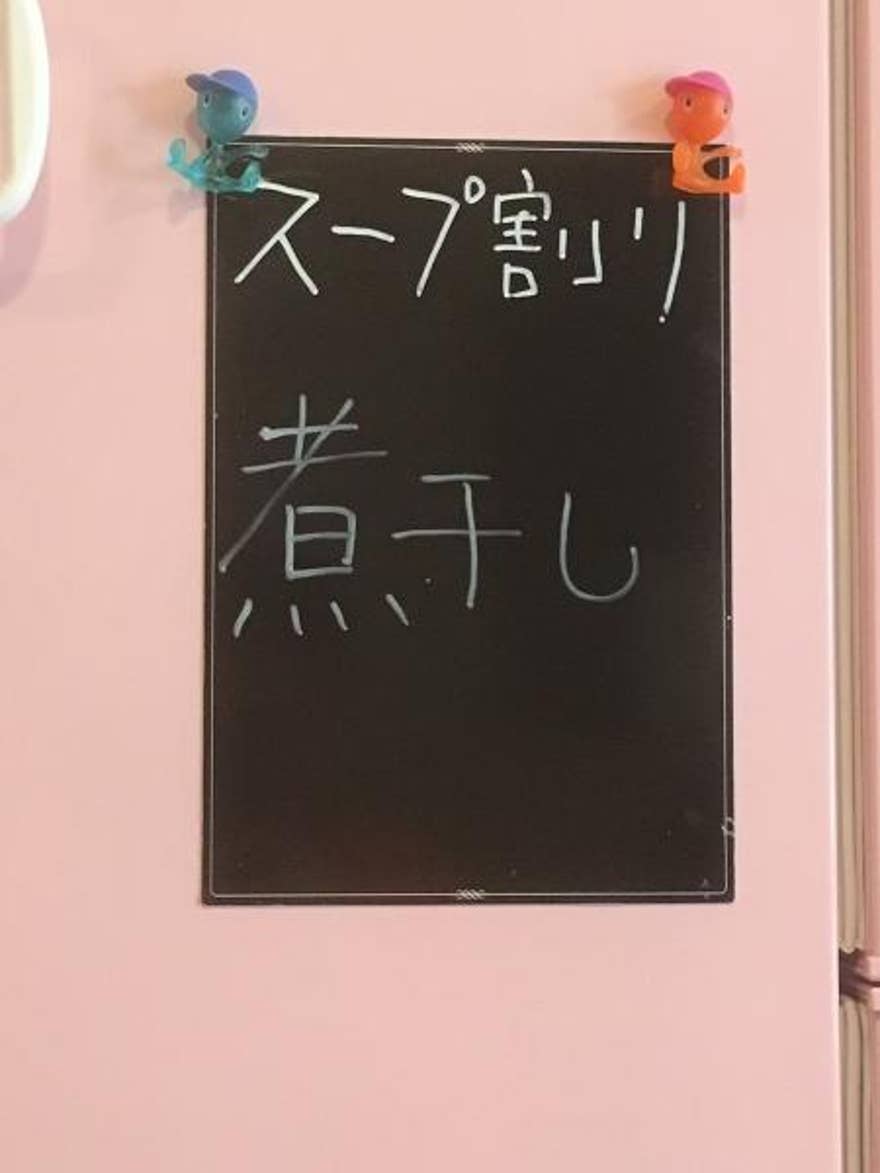 スープ割り
煮干し